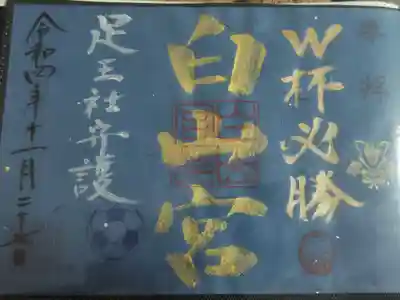 奉拝
W杯必勝
白山宮
足王社守護
令和四年十一月二十
日